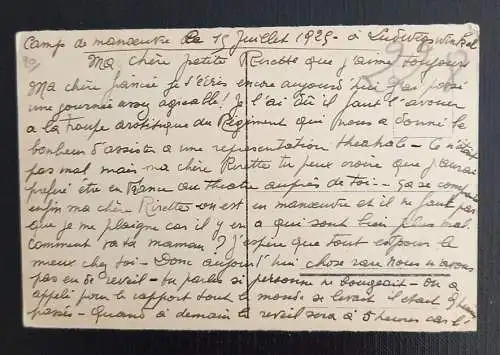 Camp de manœuvre le 15 Juillet 1925 - à Ludwigswinkel
Ma chère petite Rirette que j'aime toujours
Ma chère fiancée je t'écris encore aujourd'hui j'ai passé
une journée assez agréable! Je l'ai dû il faut l'avouer
a la troupe artistique du Régiment qui nous a donné le
bonheur d'assister a une représentation theatrale - Ce n'était
pas mal mais ma chère Rirette tu peux croire que j'aurais
preferé être en France au theatre auprès de toi - Ça se comprend
enfin ma chère Rirette - on est en manœuvre et il ne faut pas
que je me plaigne car il y en a qui sont bien plus mal.
Comment va ta maman? J'espère que tout est pour le
mieux chez toi - Donc aujourd'hui chose rare nous n'avons
pas eu de reveil - tu parles si personne ne bougeait - on a
appelé pour le rapport tout le monde se levait il était 9 heures
passés - Quand à demain le reveil sera à 5 heures car l'